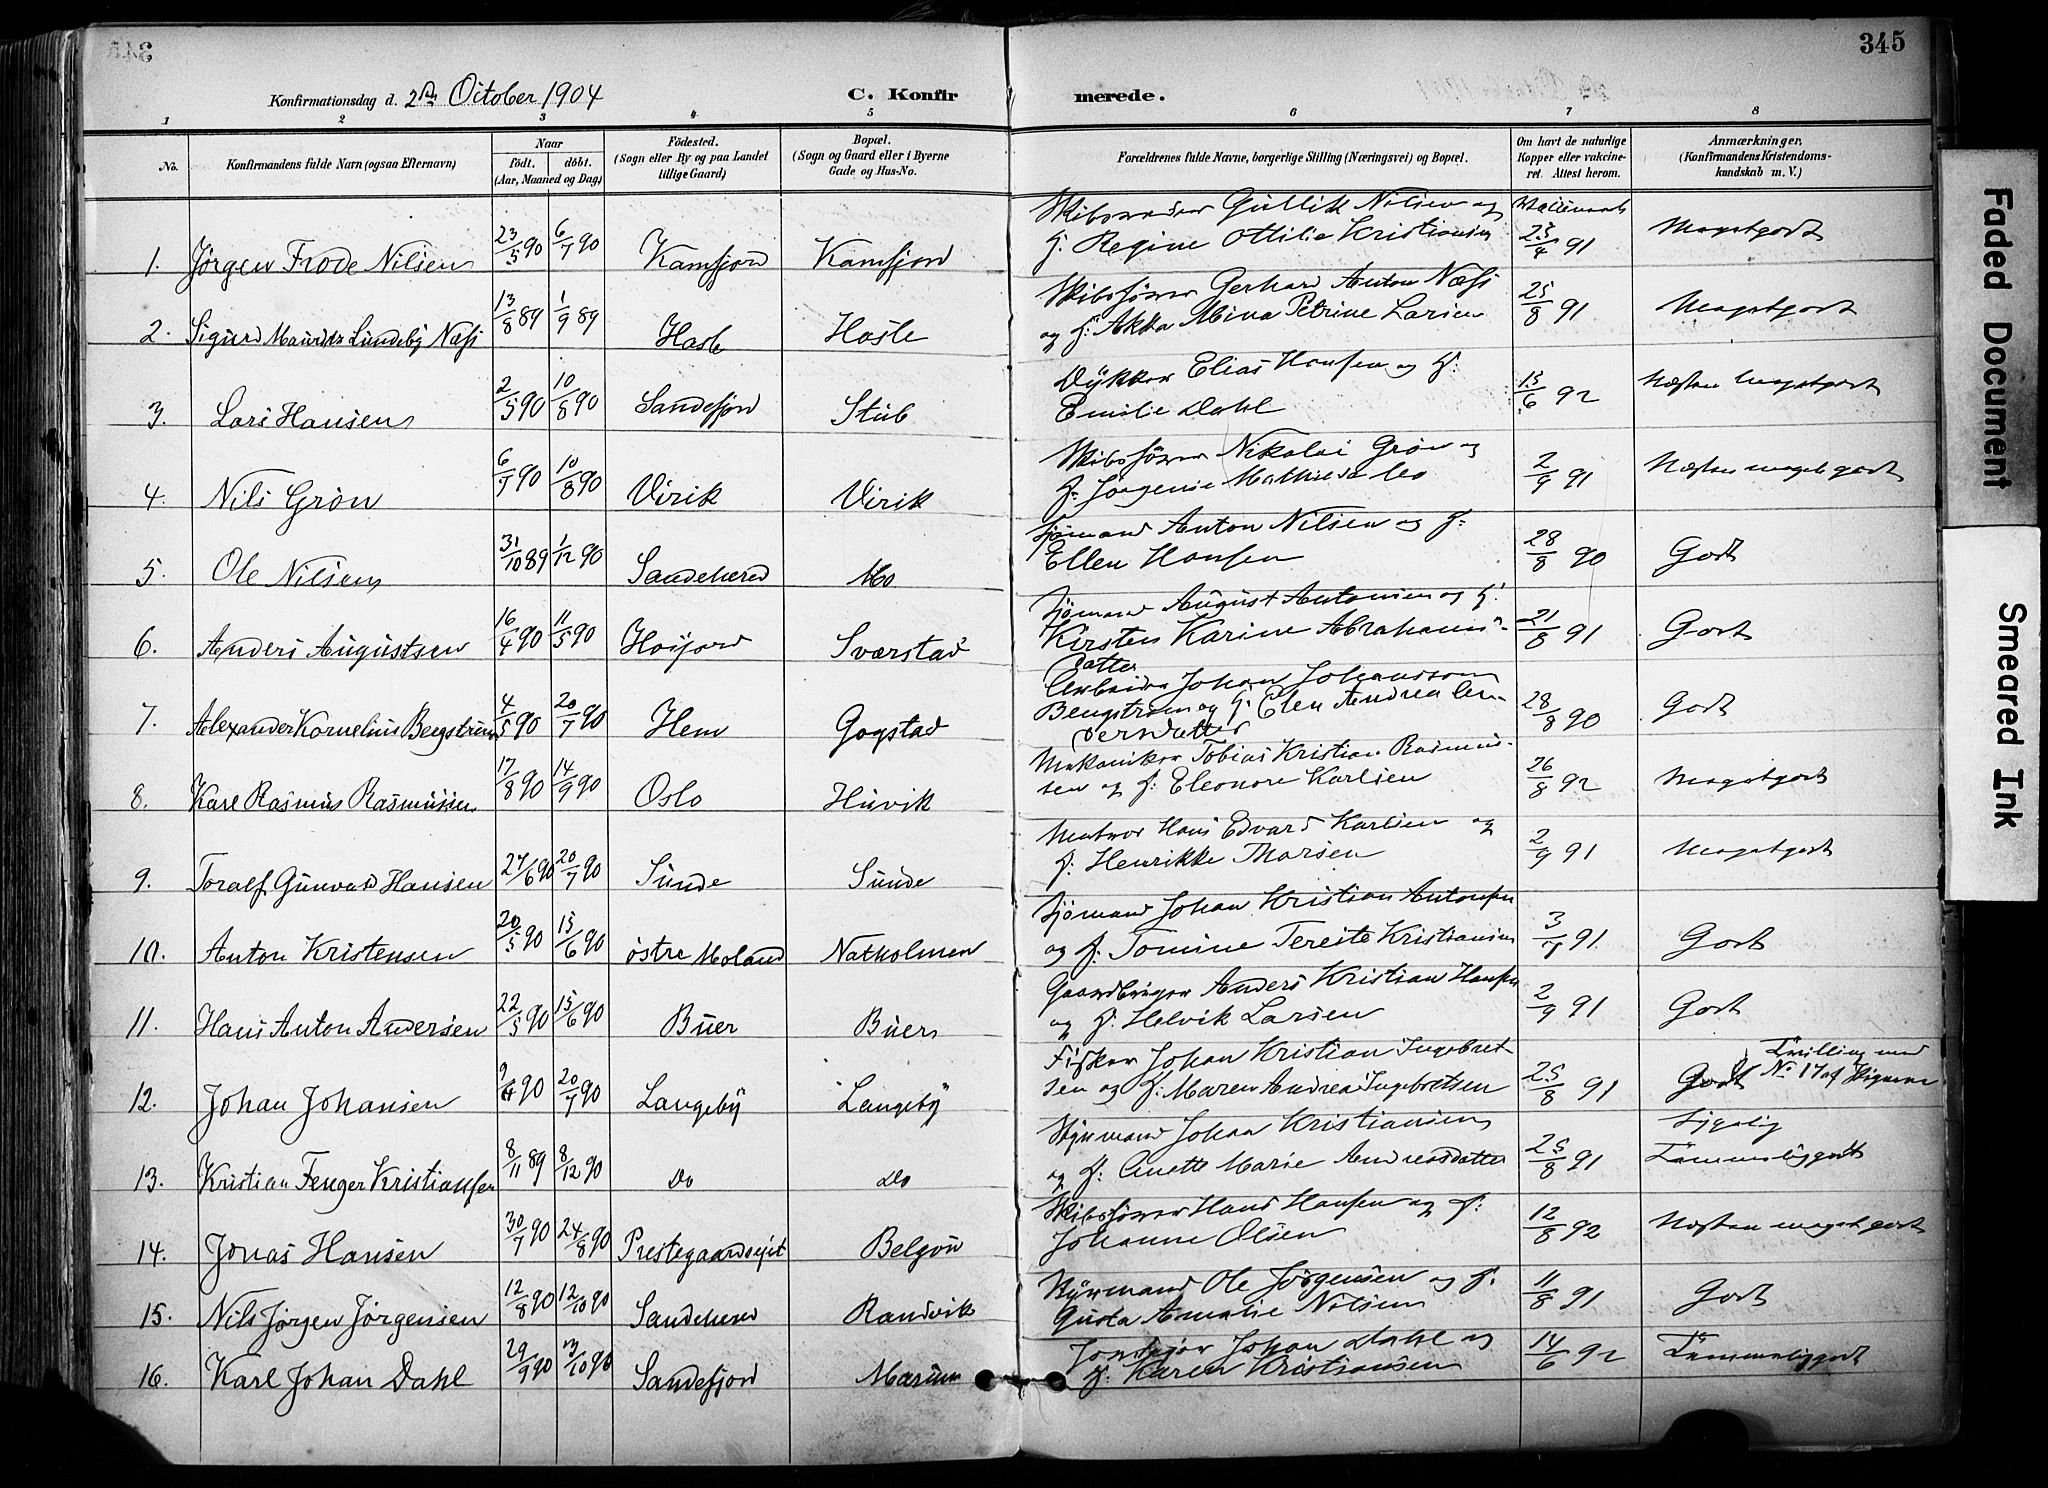 345
Konfirmationsdag d. 2den October 1904
C. Konfirmerede.
1 2 3 4 5 6 7 8
No. Konfirmandens fulde Navn (ogsaa Efternavn) Naar Födt. döbt. (Aar, Maaned og Dag) Födested. (Sogn eller By og paa Landet tillige Gaard) Bopæl. (Sogn og Gaard eller i Byerne Gade og Hus-No. Forældrenes fulde Navne, borgerlige Stilling (Næringsvei) og Bopæl. Om havt de naturlige Kopper eller vakcineret. Attest herom. Anmærkninger, (Konfirmandens Kristendomskundskab m. V.)
1. Jørgen Frode Nilsen 23/5 90 6/7 90 Kamfjord Kamfjord Gullik Nilsen og f. Regine Ottilie Kristiansen 23/4 91 Megetgodt
2. Sigurd Mauritz Lundeby Næss 13/8 89 1/9 89 Hasle Hasle Skibsfører Gerhard Anton Næss og f. Akka Mina Petrine Larsen 25/8 91 Megetgodt
3. Lars Hansen 2/5 90 10/8 90 Sandefjord Stub Dykker Elias Hansen og f: Emilie Dahl 15/6 92 Næsten megetgodt
4. Nils Grön 6/7 90 10/8 90 Virik Virik Skibsfører Nikolai Grön og f. Jørgenie Mathilde Mo 2/9 91 Næsten meget godt
5. Ole Nilsen 31/10 89 1/12 90 Sandeherred Mo Sjømand Anton Nilsen og f: Ellen Hansen 28/8 90 Godt
6. Anders Augustsen 16/4 90 11/5 90 Høijord Sværstad Sjømand August Antonsen og f. Kirsten Karine Abrahamsdatter 21/8 91 Godt
7. Alexander Kornelius Bengstrøm 4/5 90 20/7 90 Hem Gogstad Arbeider Johan Johansson Bengstrøm og f: Elen Andrea Andersdatter 28/8 90 Godt
8. Karl Rasmus Rasmussen 17/8 90 14/9 90 Oslo Huvik Mekaniker Tobias Kristian Rasmussen og f: Eleonore Karlsen 26/8 92 Megetgodt
9. Toralf Gunvald Hansen 27/6 90 20/7 90 Sunde Sunde Matros Hans Edvard Karlsen og f: Henrikke Thorsen 2/9 91 Megetgodt
10. Anton Kristensen 20/5 90 15/6 90 østre Moland Natholmen Sjømand Johan Kristian Antonsen og f: Tomine Tereite Kristiansen 3/7 91 Godt
11. Hans Anton Andersen 22/5 90 15/6 90 Buer Buer Gaardbruger Anders Kristian Hansen og f. Helvik Larsen 2/9 91 Godt
12. Johan Johansen 9/4 90 20/7 90 Langeby Langeby Fisker Johan Kristian Ingebretsen og f: Maren Andrea Ingebretsen 25/8 91 Godt Tvilling med No 17 af Pigerne
13. Kristian Fenger Kristiansen 8/11 89 8/12 90 Do Do Styrmand Johan Kristiansen og f. Anette Marie Andreasdatter 25/8 91 Sygelig Temmeliggodt
14. Jonas Hansen 30/7 90 24/8 90 Prestegaardsejet Belgau Skibsfører Hans Hansen og f: Johanne Olsen 12/8 92 Næsten meget godt
15. Nils Jørgen Jørgensen 12/8 90 12/10 90 Sandeherred Randvik Styrmand Ole Jørgensen og f. Gusta Amalie Nilsen 11/8 91 Godt
16. Karl Johan Dahl 29/9 90 3/10 90 Sandefjord Marium Johan Dahl og f: Karen Kristiansen 14/6 92 Temmeliggodt
Faded Document
Smeared Ink